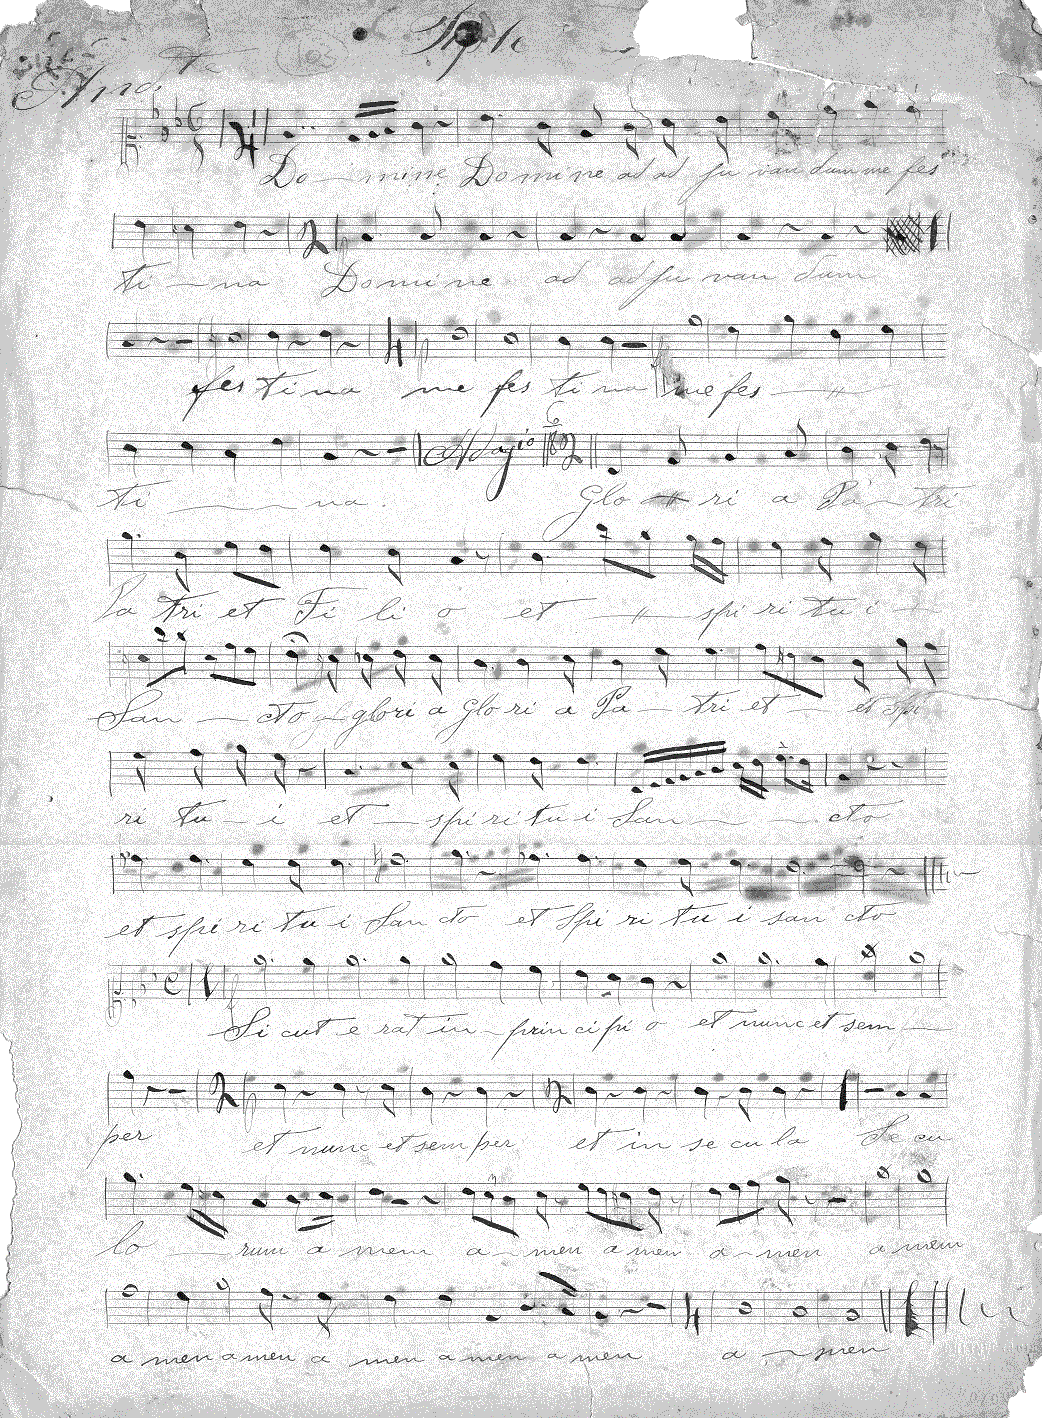 And.te
Do - mine Domine ad ad ju van dum me fes
ti - na Domine ad adju van dum
fes ti na me fes ti na me fes
ti - - - na.
Adagio
Glo ri a Pa - tri
Pa tri et Fi li o et spi ri tu i
San - cto glori a Glo ri a Pa - tri et - et Spi
ri tu - i et - spi ri tu i San - - - cto
et spi ri tu i San cto et Spi ri tu i san cto
Si cut e rat in - prin ci pi o et nunc et sem -
per et nunc et sem per et in se cu la Se cu
lo - rum a mem a - men a men a - men a mem
a men a men a men a men a men a - men